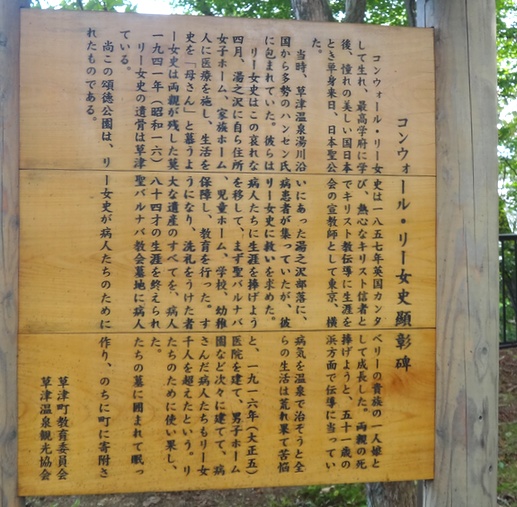 コンウォール・リー女史顕彰碑
コンウォール・リー女史は一八五七年英国カンタベリーの貴族の一人娘と
して生れ、最高学府に学び、熱心なキリスト信者として成長した。両親の死
後、憧れの美しい国日本でキリスト教伝導に生涯を捧げようと、五十一歳の
とき単身来日、日本聖公会の宣教師として東京、横浜方面で伝導に当ってい
た。
当時、草津温泉湯川沿いにあった湯之沢部落に、病気を温泉で治そうと全
国から多勢のハンセン氏病患者が集っていたが、彼らの生活は荒れ果て苦悩
に包まれていた。彼らはリー女史に救いを求めた。
リー女史はこの哀れな病人たちに生涯を捧げようと、一九一六年(大正五)
四月、湯之沢に自ら住所を移して、まず聖バルナバ医院を建て、男子ホーム
女子ホーム、家族ホーム、児童ホーム、学校、幼稚園など次々に建てて、病
人に医療を施し、生活を保障し、教育を行った。すさんだ病人たちもリー女
史を「母さん」と慕うようになり、洗礼をうけた者千人を超えたという。リ
ー女史は両親が残した莫大な遺産のすべてを、病人たちのために使い果し、
一九四一年(昭和一六)八十四才の生涯を終えられた
リー女史の遺骨は草津聖バルナバ教会墓地に病人たちの墓に囲まれて眠っ
ている。
尚この頌徳公園は、リー女史が病人たちのために作り、のちに町に寄附さ
れたものである。
草津町教育委員会
草津温泉観光協会